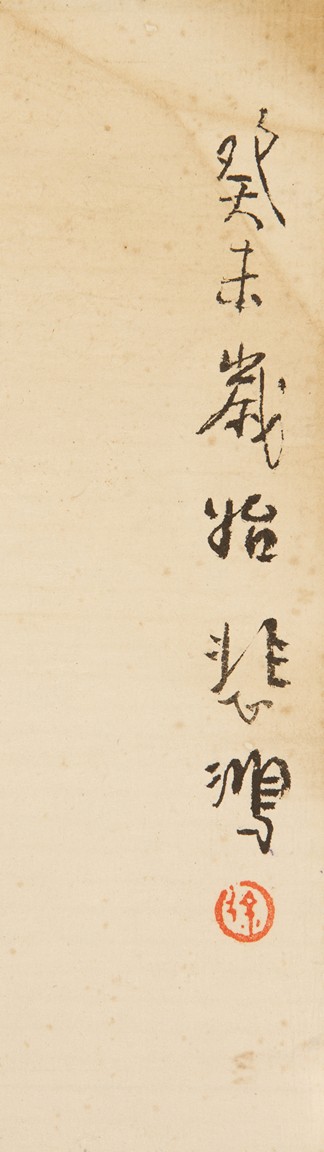 癸未歲始悲鴻
徐